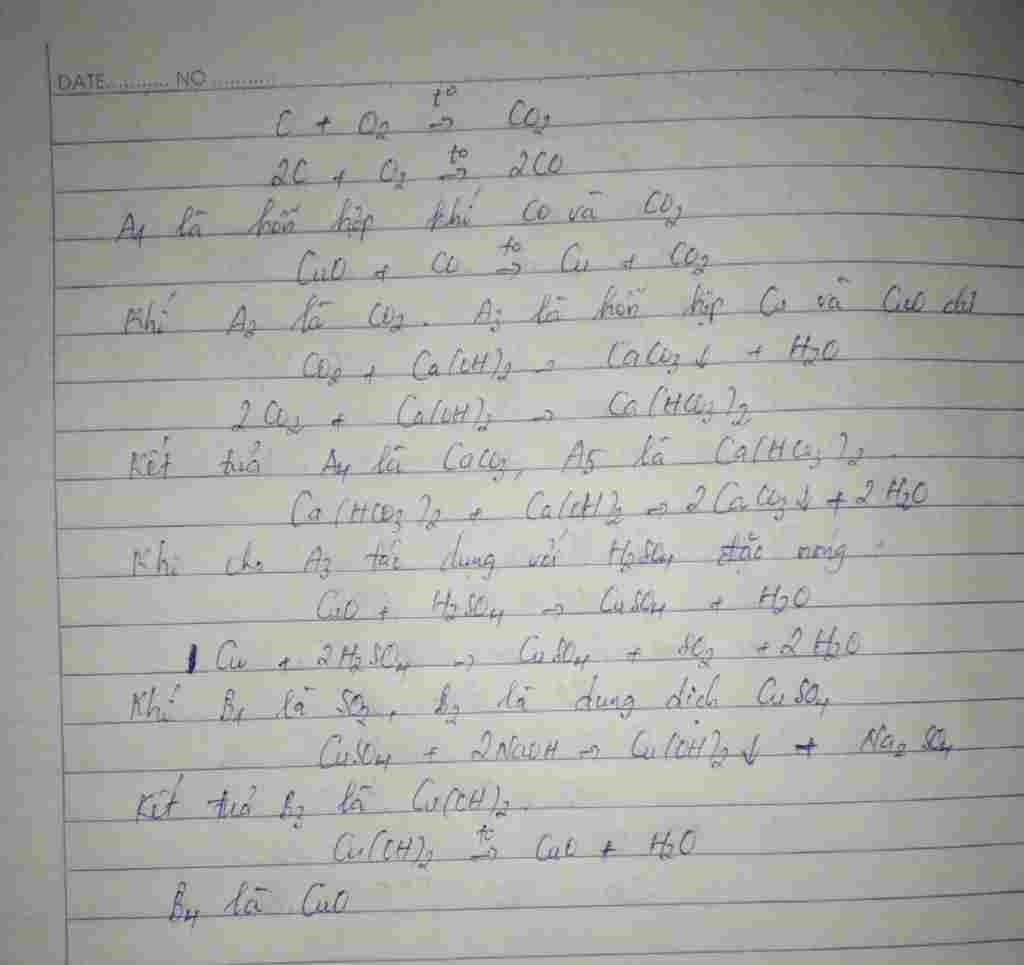 DATE............ NO ............
C + O₂ →(t°) CO₂
2C + O₂ →(t°) 2CO
A₁ là hỗn hợp khí CO và CO₂
CuO + CO →(t°) Cu + CO₂
Khí A₂ là CO₂. A₃ là hỗn hợp Cu và CuO dư
CO₂ + Ca(OH)₂ → CaCO₃↓ + H₂O
2CO₂ + Ca(OH)₂ → Ca(HCO₃)₂
Kết tủa A₄ là CaCO₃, A₅ là Ca(HCO₃)₂.
Ca(HCO₃)₂ + Ca(OH)₂ → 2CaCO₃↓ + 2H₂O
Khi cho A₃ tác dụng với H₂SO₄ đặc nóng.
CuO + H₂SO₄ → CuSO₄ + H₂O
Cu + 2H₂SO₄ → CuSO₄ + SO₂ + 2H₂O
Khí B₁ là SO₂, B₂ là dung dịch CuSO₄
CuSO₄ + 2NaOH → Cu(OH)₂↓ + Na₂SO₄
Kết tủa B₃ là Cu(OH)₂.
Cu(OH)₂ →(t°) CuO + H₂O
B₄ là CuO